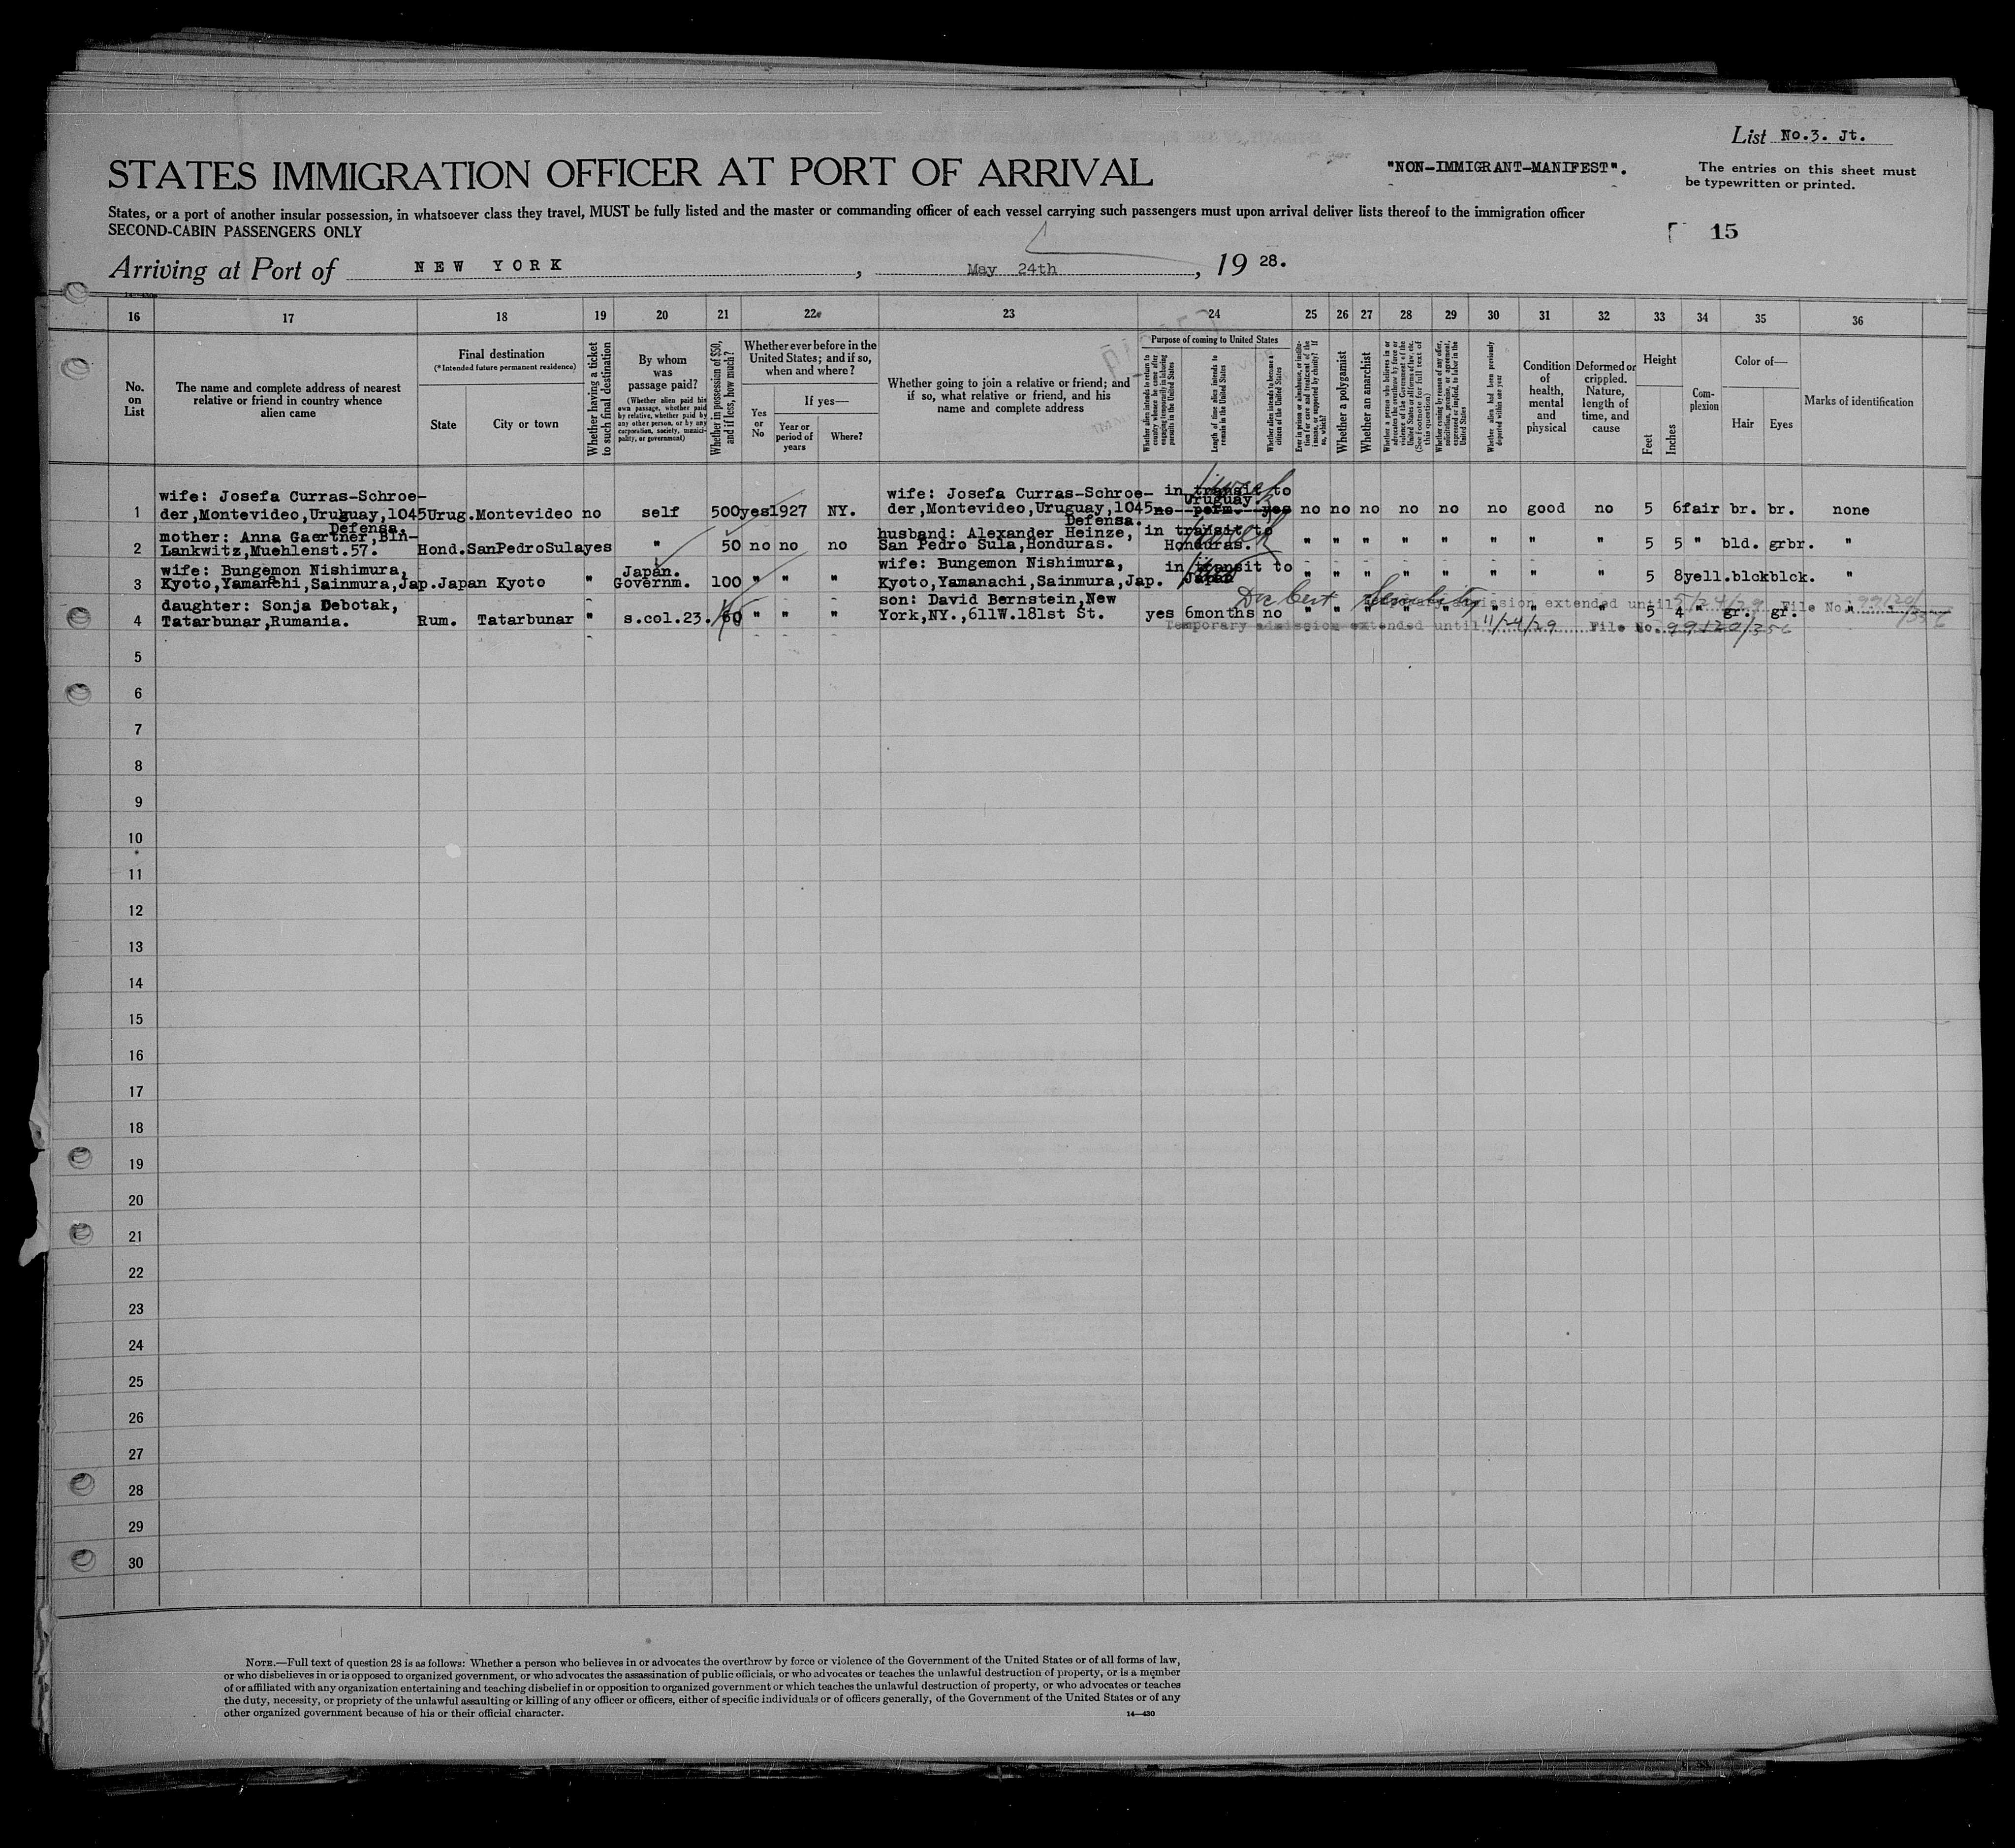 List No.3. Jt.
STATES IMMIGRATION OFFICER AT PORT OF ARRIVAL
"NON-IMMIGRANT-MANIFEST".
The entries on this sheet must
be typewritten or printed.
States, or a port of another insular possession, in whatsoever class they travel, MUST be fully listed and the master or commanding officer of each vessel carrying such passengers must upon arrival deliver lists thereof to the immigration officer
SECOND-CABIN PASSENGERS ONLY
15
Arriving at Port of NEW YORK, May 24th, 1928.
16 17 18 19 20 21 22 23 24 25 26 27 28 29 30 31 32 33 34 35 36
No.
on
List
The name and complete address of nearest
relative or friend in country whence
alien came
Final destination
(*Intended future permanent residence)
State
City or town
Whether having a ticket
to such final destination
By whom
was
passage paid?
(Whether alien paid his
own passage, whether paid
by relative, whether paid by
any other person, or by any
corporation, society, munici-
pality, or government)
Whether in possession of $50,
and if less, how much?
Whether ever before in the
United States; and if so,
when and where?
Yes
or
No
If yes—
Year or
period of
years
Where?
Whether going to join a relative or friend; and
if so, what relative or friend, and his
name and complete address
Purpose of coming to United States
Whether alien intends to return to
country whence he came after
engaging temporarily in laboring
pursuits in the United States
Length of time alien intends to
remain in the United States
Whether alien intends to become a
citizen of the United States
Ever in prison or almshouse, or institu-
tion for care and treatment of the
insane, or supported by charity? If
so, which?
Whether a polygamist
Whether an anarchist
Whether a person who believes in or
advocates the overthrow by force or
violence of the Government of the
United States or all forms of law, etc.
(See footnote for full text of
this question)
Whether coming by reason of any offer,
solicitation, promise, or agreement,
expressed or implied, to labor in the
United States
Whether alien had been previously
deported within one year
Condition
of
health,
mental
and
physical
Deformed or
crippled.
Nature,
length of
time, and
cause
Height
Feet
Inches
Com-
plexion
Color of—
Hair
Eyes
Marks of identification
wife: Josefa Curras-Schroe- wife: Josefa Curras-Schroe- in transit to
Uruguay
1 der,Montevideo,Uruguay,1045 Urug. Montevideo no self 500 yes 1927 NY. der,Montevideo,Uruguay,1045 no perm. yes no no no no no no good no 5 6 fair br. br. none
Defensa. Defensa.
mother: Anna Gaertner,Bln- husband: Alexander Heinze, in transit to
2 Lankwitz,Muehlenst.57. Hond. SanPedroSula yes " 50 no no no San Pedro Sula,Honduras. Honduras. " " " " " " " " 5 5 " bld. grbr. "
wife: Bungemon Nishimura, Japan. wife: Bungemon Nishimura, in transit to
3 Kyoto,Yamanachi,Sainmura,Jap. Japan Kyoto " Governm. 100 " " " Kyoto,Yamanachi,Sainmura,Jap. Japan " " " " " " " " 5 8 yell. blck blck. "
daughter: Sonja Debotak, son: David Bernstein,New
admission extended until 5/24/29 File No. 99120/356
4 Tatarbunar,Rumania. Rum. Tatarbunar " s.col.23. 60 " " " York,NY.,611W.181st St. yes 6months no " " " " " " " " 5 4 " gr. gr. "
Temporary admission extended until 11/24/29 File No. 99120/356
5
6
7
8
9
10
11
12
13
14
15
16
17
18
19
20
21
22
23
24
25
26
27
28
29
30
NOTE.—Full text of question 28 is as follows: Whether a person who believes in or advocates the overthrow by force or violence of the Government of the United States or of all forms of law,
or who disbelieves in or is opposed to organized government, or who advocates the assassination of public officials, or who advocates or teaches the unlawful destruction of property, or is a member
of or affiliated with any organization entertaining and teaching disbelief in or opposition to organized government or which teaches the unlawful destruction of property, or who advocates or teaches
the duty, necessity, or propriety of the unlawful assaulting or killing of any officer or officers, either of specific individuals or of officers generally, of the Government of the United States or of any
other organized government because of his or their official character.
14—430